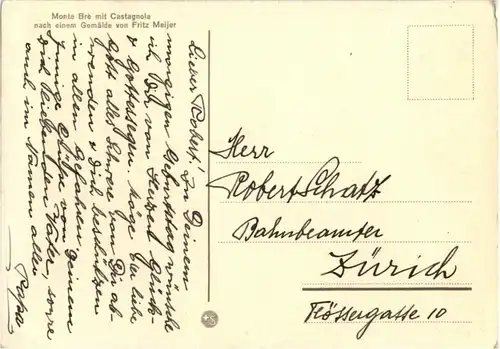 Monte Brè mit Castagnola
nach einem Gemälde von Fritz Meijer
Lieber Robert! Zu Deinem
morgigen Geburtstag wünsche
ich Dir von Herzen Glück-
& Gottessegen. Möge der liebe
Gott alles Schwere von Dir ab-
wenden & Dich beschützen
in allen Gefahren
Innige Grüße von Deinem
Dich liebenden Vater, sowie
auch im Namen aller
Papa
Herr
Robert Schatz
Bahnbeamter
Zürich
Flössergasse 10